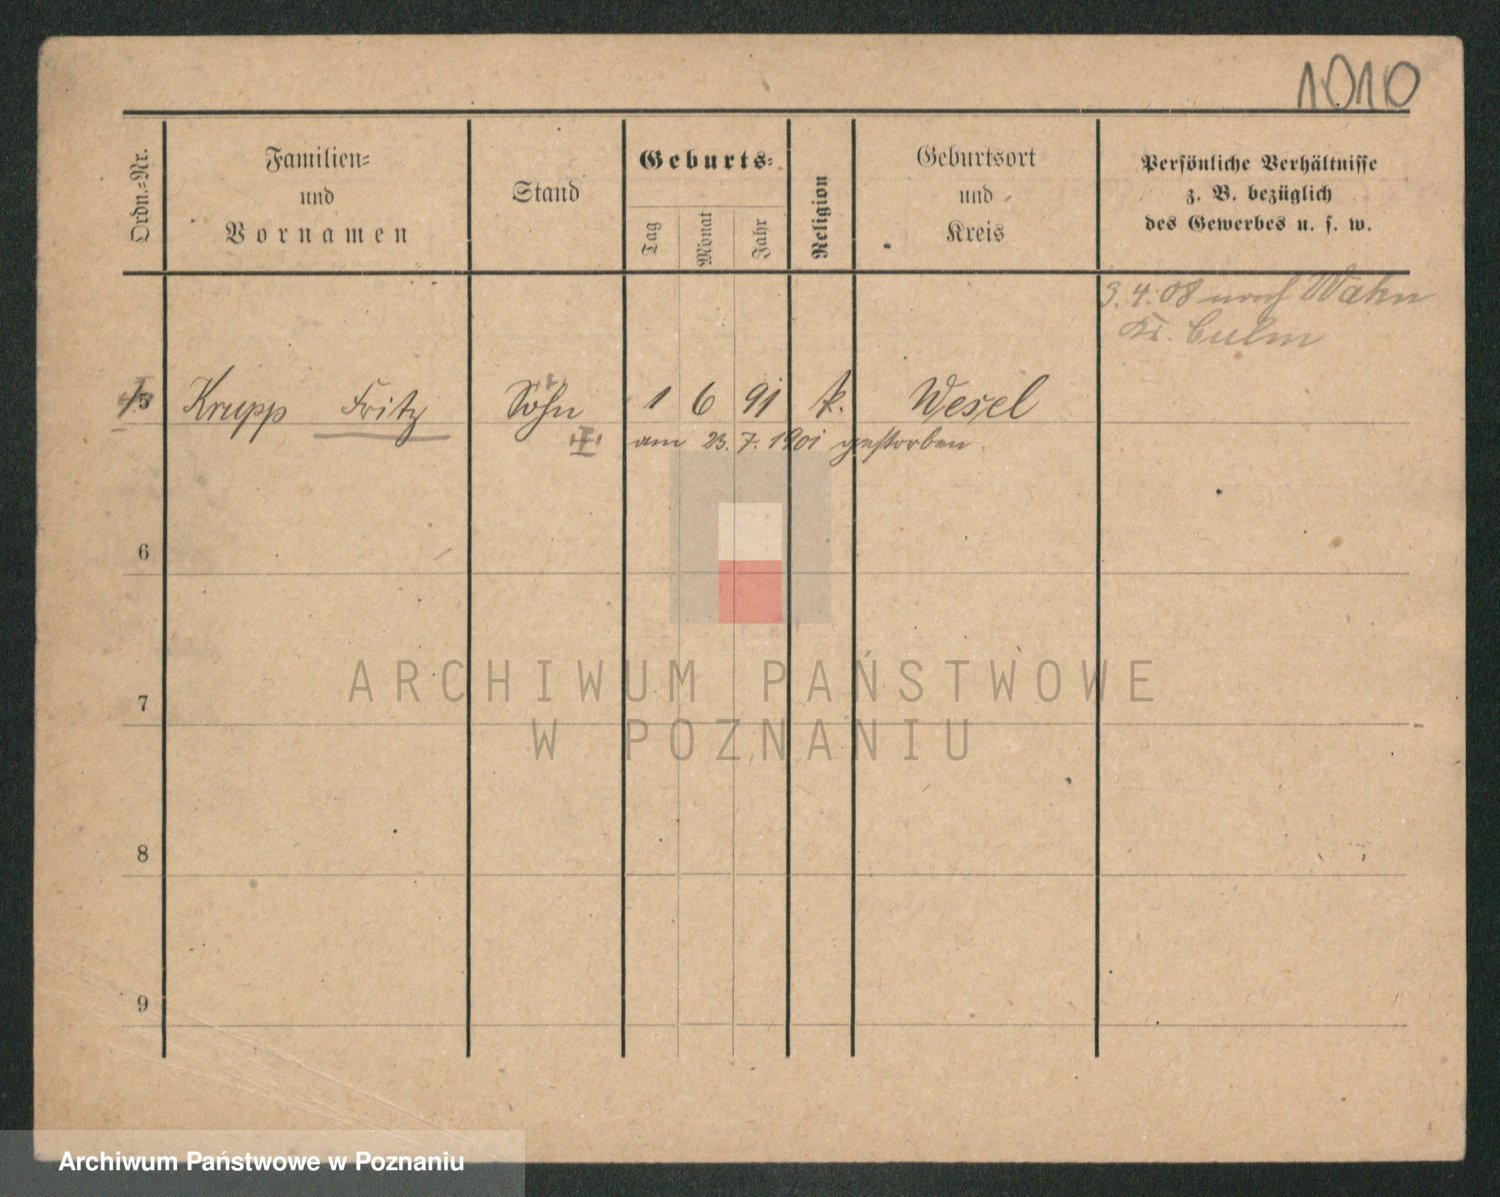 1010
Ordn.=Nr.
Familien=
und
Vornamen
Stand
Geburts=
Tag
Monat
Jahr
Religion
Geburtsort
und
Kreis
Persönliche Verhältnisse
z. B. bezüglich
des Gewerbes u. s. w.
3.4.08 nach Wahn
Kr. Culm
5 Krupp Fritz Sohn 1 6 91 k. Wesel
am 23.7.1901 gestorben.
6
7
8
9
ARCHIWUM PAŃSTWOWE
W POZNANIU
Archiwum Państwowe w Poznaniu